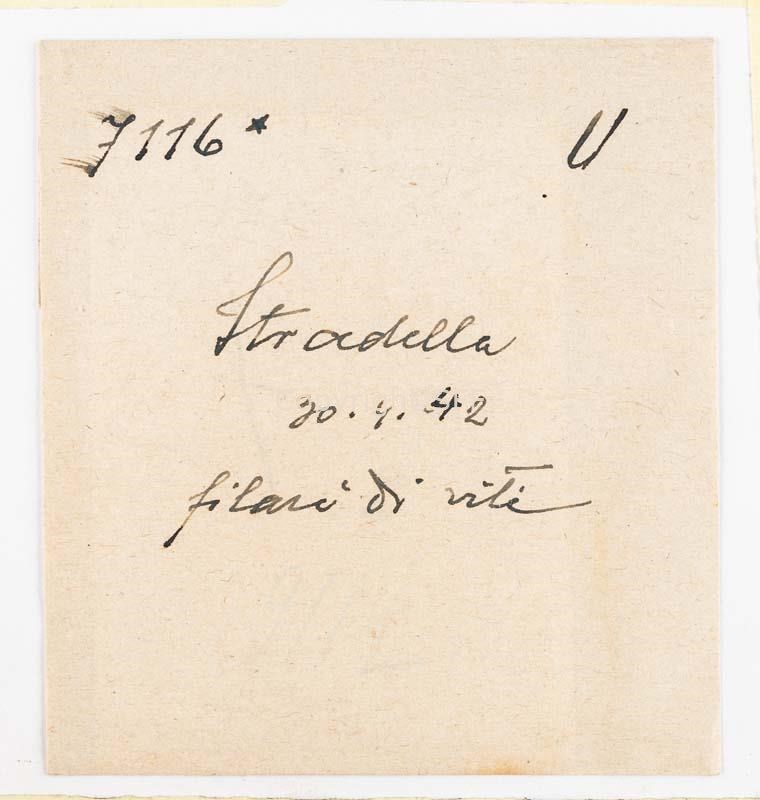 7116* U
Stradella
30.4.42
filari di viti